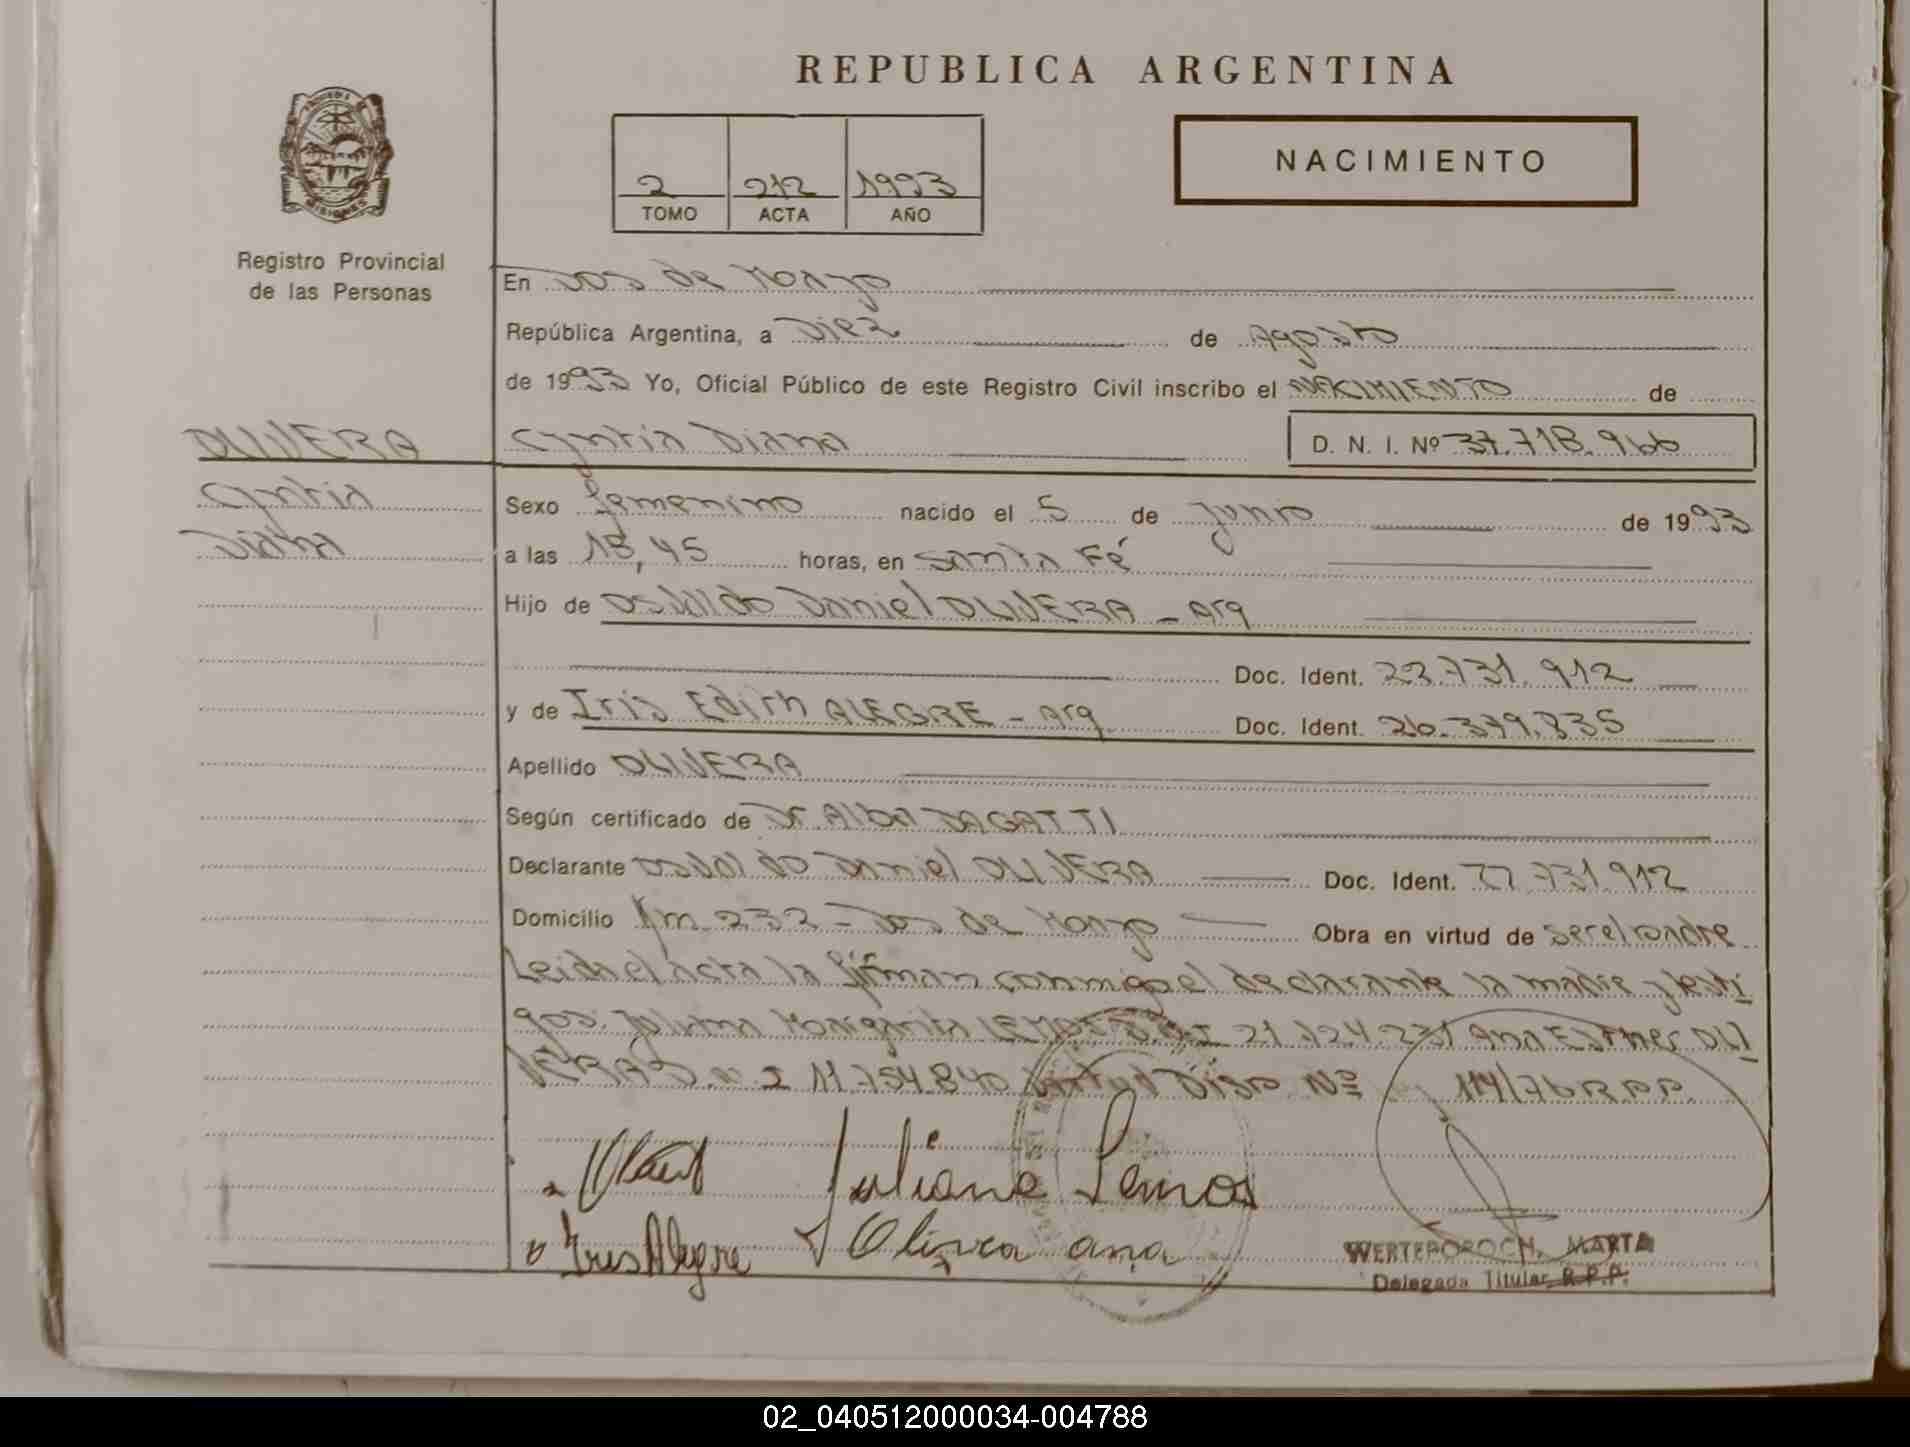 REPUBLICA ARGENTINA
NACIMIENTO
2 212 1993
TOMO ACTA AÑO
MISIONES
Registro Provincial
de las Personas
En Dos de Mayo
República Argentina, a Diez de Agosto
de 1993 Yo, Oficial Público de este Registro Civil inscribo el NACIMIENTO de
OLIVERA Cyntia Diana D. N. I. Nº 37.718.966
Cyntia
Diana
Sexo femenino nacido el 5 de Junio de 1993
a las 18,45 horas, en Santa Fé
Hijo de Osvaldo Daniel OLIVERA - Arg
Doc. Ident. 22.731.912
y de Iris Edith ALEGRE - Arg Doc. Ident. 26.379.835
Apellido OLIVERA
Según certificado de Dr Alba DAGATTI
Declarante Osvaldo Daniel OLIVERA Doc. Ident. 22.731.912
Domicilio Km 232 - Dos de Mayo Obra en virtud de ser el padre
Leida el acta la firman conmigo el declarante la madre y testi
gos: Juliana Margarita LEMOS D.N.I 21.724.231 Ana Esther OLI
VERA D.N.I 11.754.840 Virtud Disp. Nº 114/76 R.P.P.
Juliana Lemos
Iris Alegre Olivera ana
WERTEPOROCH, MARTA
Delegada Titular R.P.P.
02_040512000034-004788